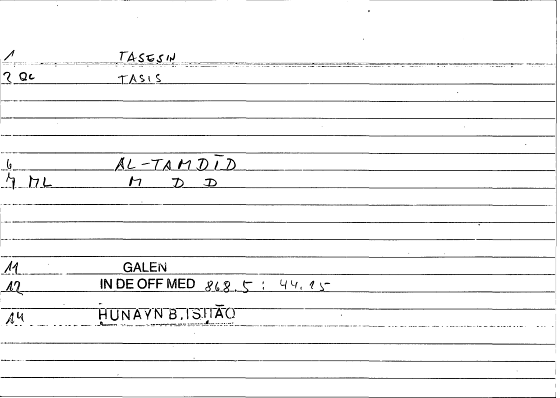 1 TASESIN
2 QC TASIS
6 AL-TAMDĪD
7 ML M D D
11 GALEN
12 IN DE OFF MED 868.5 : 44.15
14 ḤUNAYN B. ISḤĀQ